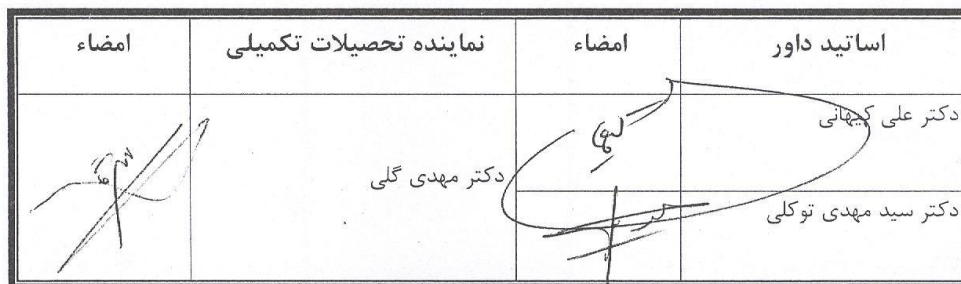 اساتید داور	امضاء	نماینده تحصیلات تکمیلی	امضاء
دکتر علی کیهانی
دکتر مهدی گلی
دکتر سید مهدی توکلی